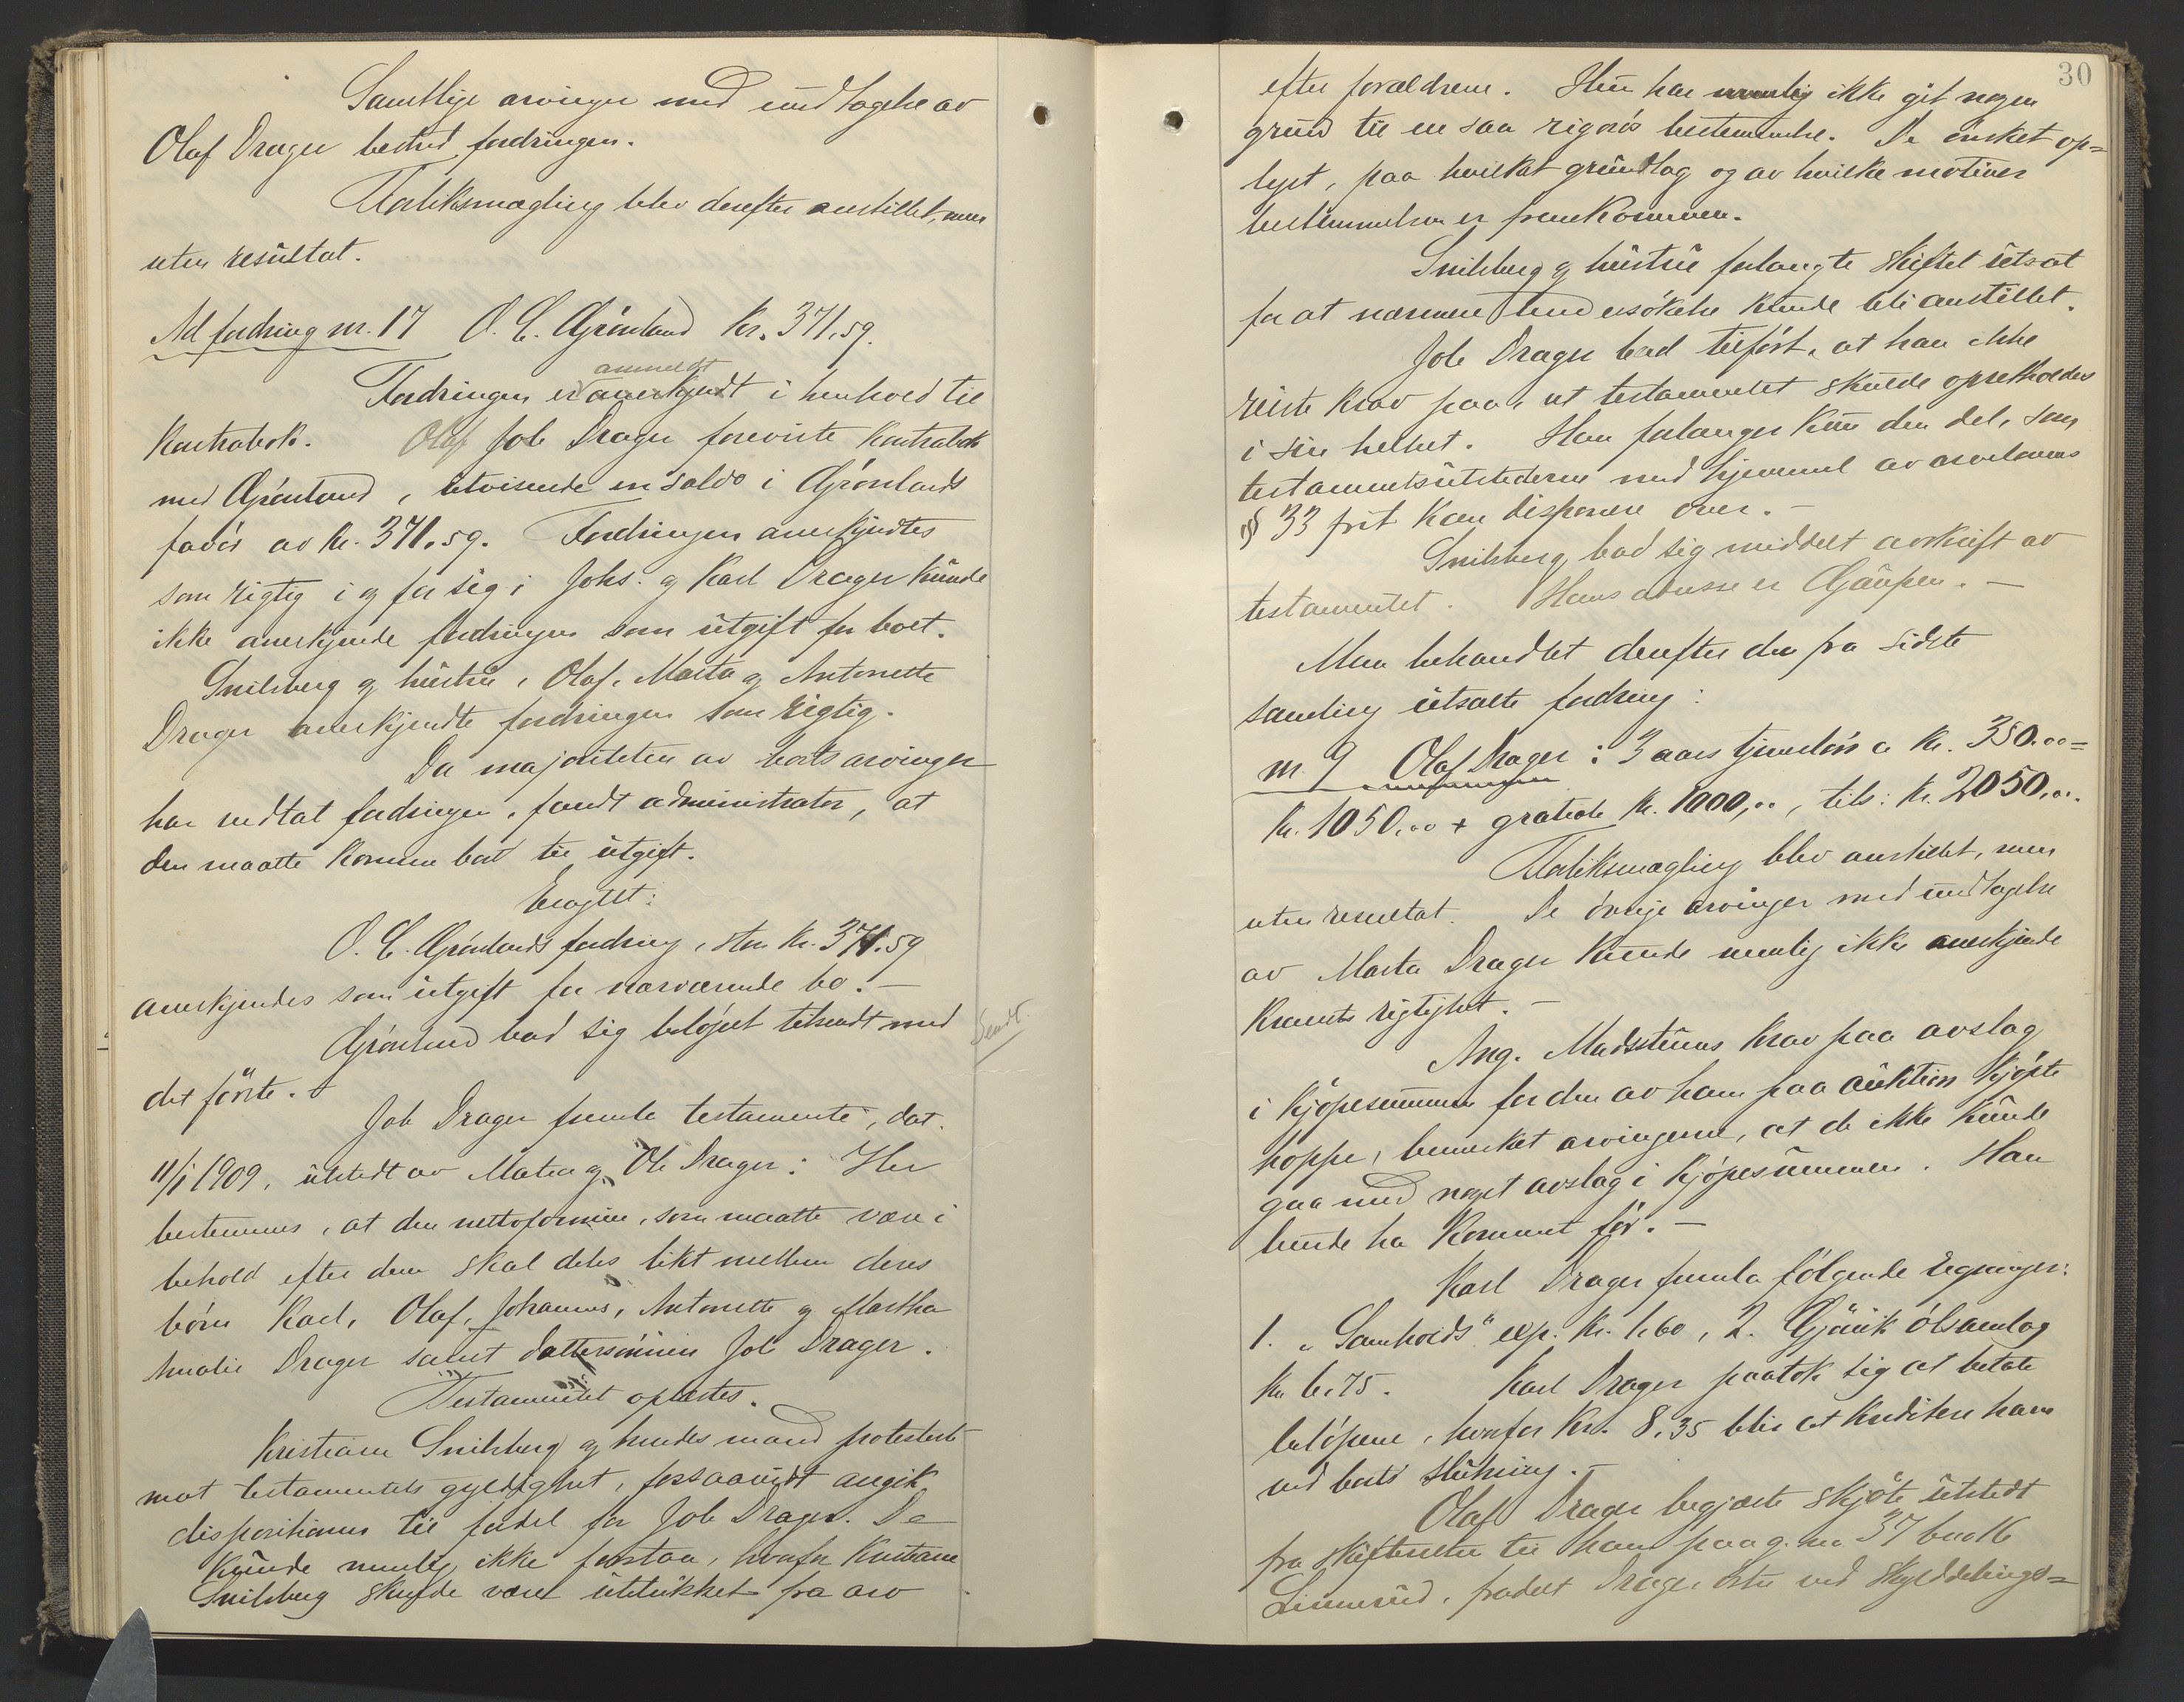 Samtlige arvinger med undtagelse av
Olaf Drager bestred fordringen.
Forliksmægling blev derefter anstillet, men
uten resultat.
Ad fordring nr. 17 O. E. Grönland Kr. 371.59.
anmeldt
Fordringen er anerkjendt i henhold til
Kontrabok. Olaf Job Drager foreviste kontrabok
med Grönland, utvisende en saldo i Grönlands
favör av kr. 371.59. Fordringen anerkjendtes
som rigtig i og for sig; Johs. og Karl Drager kunde
ikke anerkjende fordringen som utgift for boet.
Snilsberg og hustru, Olaf, Marta og Antonette
Drager anerkjendte fordringen som rigtig.
Da majoriteten av boets arvinger
har vedtat fordringen, fandt administrator, at
den maatte komme boet til utgift.
Eragtet:
O. E. Grönlands fordring, stor kr. 371.59
anerkjendes som utgift for nærværende bo. –
Grönland bad sig belöpet tilsendt med
Sendt.
det förste. –
Job Drager fremla testamente, dat.
11/1 1909, utstedt av Matea og Ole Drager: Her
bestemmes, at den nettoformue, som maatte være i
behold efter dem skal deles likt mellem deres
börn Karl, Olaf, Johannes, Antonette og Martha
Amalie Drager samt dattersönnen Job Drager.
Testamentet oplæstes.
Kristiane Snilsberg og hendes mand protesterte
mot testamentets gyldighet, forsaavidt angik
dispositionen til fordel for Job Drager. De
kunde nemlig ikke forstaa, hvorfor Kristiane
Snilsberg skulde være utelukket fra arv
30
efter forældrene. Hun har nemlig ikke git nogen
grund til en saa rigorös bestemmelse. De önsket op=
lyst, paa hvilket grundlag og av hvilke motiver
bestemmelsen er fremkommen.
Snilsberg og hustru forlangte skiftet utsat
for at nærmere undersökelse kunde bli anstillet.
Job Drager bad tilfört, at han ikke
reiste krav paa, at testamentet skulde opretholdes
i sin helhet. Han forlanger kun den del, som
testamentsutstederne med hjemmel av arvelovens
§ 33 frit kan disponere over. –
Snilsberg bad sig meddelt avskrift av
testamentet. Hans adresse er Gjerpen. –
Man behandlet derefter den fra sidste
samling utsatte fordring:
nr. 9 Olaf Drager: 3 aars tjenerlön a kr. 350.00 =
kr. 1050.00 + gratiale kr. 1000,00, tils: kr. 2050,00.
Forliksmægling blev anstillet, men
uten resultat. De övrige arvinger med undtagelse
av Marta Drager kunde nemlig ikke anerkjende
kravets rigtighet. –
Ang. Madsstuens krav paa avslag
i kjöpesummen for den av ham paa auktion kjöpte
hoppe, bemerket arvingerne, at de ikke kunde
gaa med noget avslag i kjöpesummen. Han
burde ha kommet för. –
Karl Drager fremla fölgende regninger:
1. "Samholds" exp. kr. 1.60, 2. Gjövik ölsamlag
kr. 6.75. Karl Drager paatok sig at betale
belöpene, hvorfor kr. 8.35 blir at kreditere ham
ved boets slutning. –
Olaf Drager begjærte skjöte utstedt
fra skifteretten til ham paa g. nr. 37 br. nr. 16
Linnerud, fradelt Drager östre ved skylddelings=